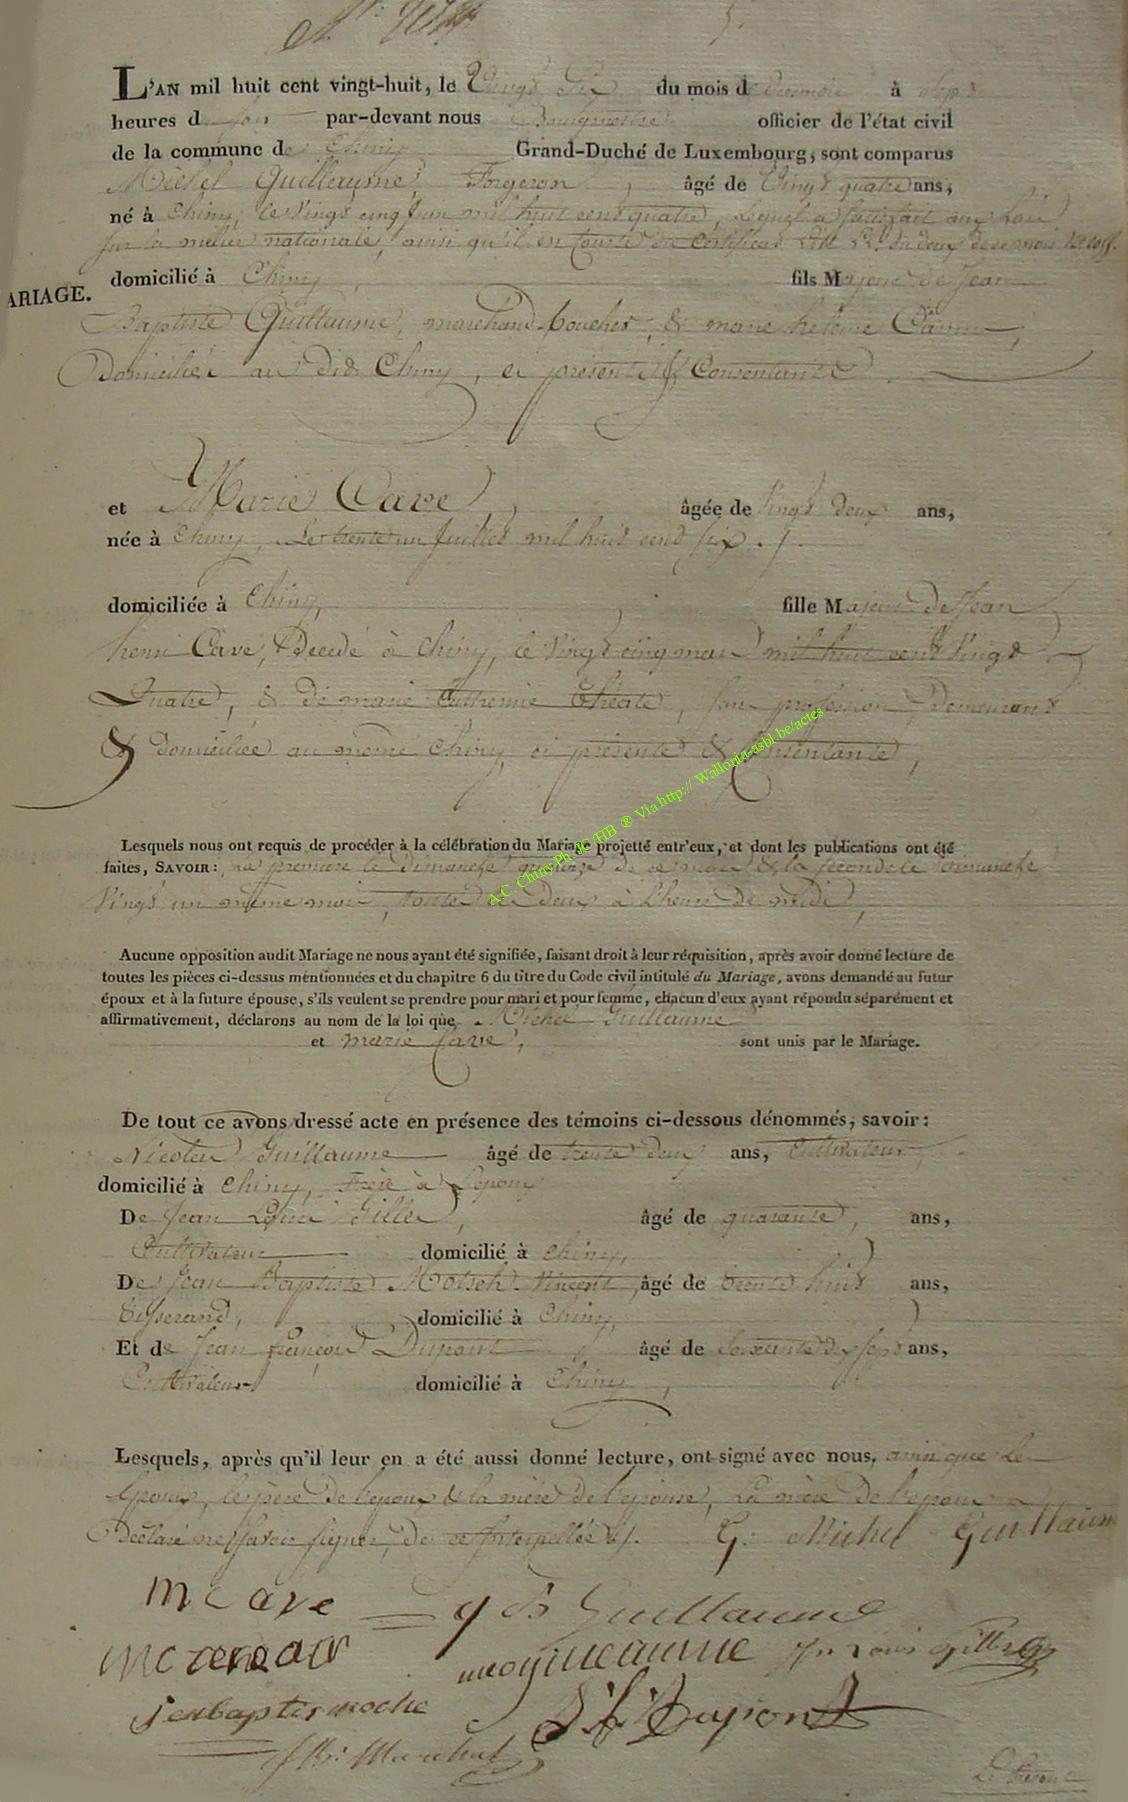 L'AN mil huit cent vingt-huit, le Vingt Six du mois d decembre à sept
heures d soir par-devant nous Bourgmestre officier de l'état civil
de la commune de Chiny Grand-Duché de Luxembourg, sont comparus
Michel Guillaume, Forgeron, âgé de Vingt quatre ans,
né à Chiny, le Vingt cinq juin mil huit cent quatre, lequel a satisfait aux Lois
sur la milice nationale, ainsi qu'il en Conste du certificat du deux de ce mois
domicilié à Chiny, fils Majeur de Jean
MARIAGE.
Baptiste Guillaume, marchand boucher, & marie helene
Domiciliés au dit Chiny, ci présents & Consentants
et Marie Cave, âgée de Vingt deux ans,
née à Chiny, Le trente un Juillet mil huit cent six ./.
domiciliée à Chiny, fille Majeure de Jean
henri Cavé, Decedé à Chiny, le Vingt cinq mil huit cent Vingt
Quatre, & de marie Catherine, sans profession, Demeurant
& domiciliée au même Chiny, ci présente & Consentante,
A.C. Chiny Ph JC/HB ® Via http:// Wallonia-asbl.be/actes
Lesquels nous ont requis de procéder à la célébration du Mariage projetté entr'eux, et dont les publications ont été
faites, SAVOIR: La première le dimanche quatorze de ce mois & la seconde le dimanche
Vingt un même mois, toutes deux à l'heure de midi,
Aucune opposition audit Mariage ne nous ayant été signifiée, faisant droit à leur réquisition, après avoir donné lecture de
toutes les pièces ci-dessus mentionnées et du chapitre 6 du titre du Code civil intitulé du Mariage, avons demandé au futur
époux et à la future épouse, s'ils veulent se prendre pour mari et pour femme, chacun d'eux ayant répondu séparément et
affirmativement, déclarons au nom de la loi que Michel Guillaume
et marie Cavé, sont unis par le Mariage.
De tout ce avons dressé acte en présence des témoins ci-dessous dénommés, savoir:
Nicolas Guillaume âgé de trente deux ans, Cultivateur,
domicilié à Chiny, Frère à l'époux
De Jean Louis Gilles, âgé de quarante, ans,
Cultivateur domicilié à Chiny,
De Jean Baptiste Motsch Vincent, âgé de trente huit ans,
Tisserand, domicilié à Chiny,
Et de Jean François Dupont âgé de Soixante dix sept ans,
Cultivateur domicilié à Chiny,
Lesquels, après qu'il leur en a été aussi donné lecture, ont signé avec nous, ainsi que Les
Epoux, le père de l'époux & la mère de l'épouse, La mère de l'époux a
Déclaré ne savoir signer, de ce interpellée ./. G: Michel Guillaume
M Cave G Guillaume
Jn Louis Gilles
jenbaptis moche J f Dupont